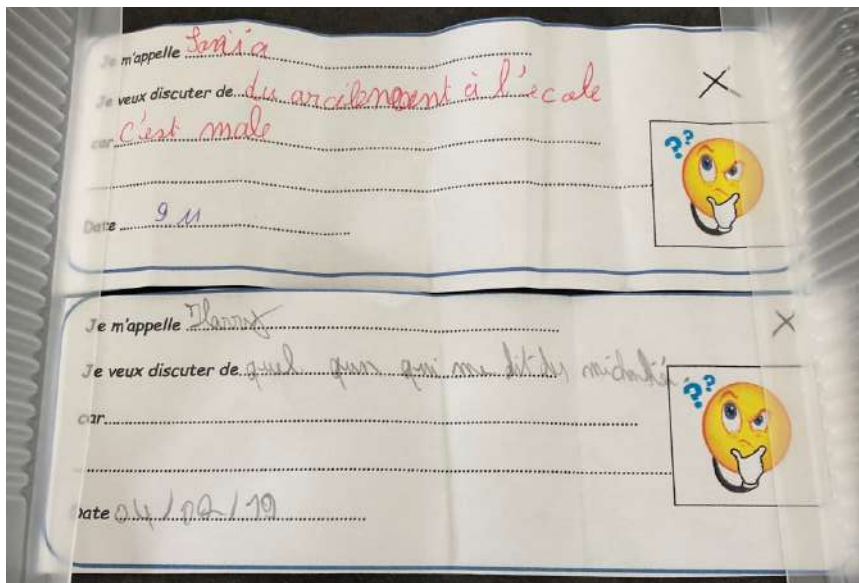 Je m'appelle Sonia
Je veux discuter de du arcilement à l'ecole
car c'est male
Date 9 11
Je m'appelle Harry
Je veux discuter de quel qun qui me dit des
car
Date 04/02/19